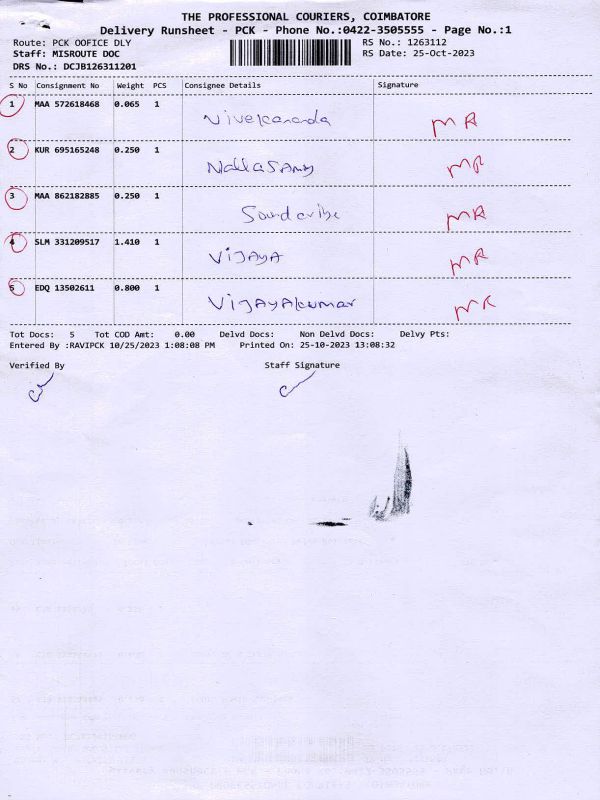 THE PROFESSIONAL COURIERS, COIMBATORE
Delivery Runsheet - PCK - Phone No.:0422-3505555 - Page No.:1
Route: PCK OOFICE DLY RS No.: 1263112
Staff: MISROUTE DOC RS Date: 25-Oct-2023
DRS No.: DCJB126311201
S No Consignment No Weight PCS Consignee Details Signature
1 MAA 572618468 0.065 1
Vivekananda MR
2 KUR 695165248 0.250 1
Nallasamy MR
3 MAA 862182885 0.250 1
MR
4 SLM 331209517 1.410 1
VIJAYA MR
5 EDQ 13502611 0.800 1
VIJAYAkumar MR
Tot Docs: 5 Tot COD Amt: 0.00 Delvd Docs: Non Delvd Docs: Delvy Pts:
Entered By :RAVIPCK 10/25/2023 1:08:08 PM Printed On: 25-10-2023 13:08:32
Verified By Staff Signature